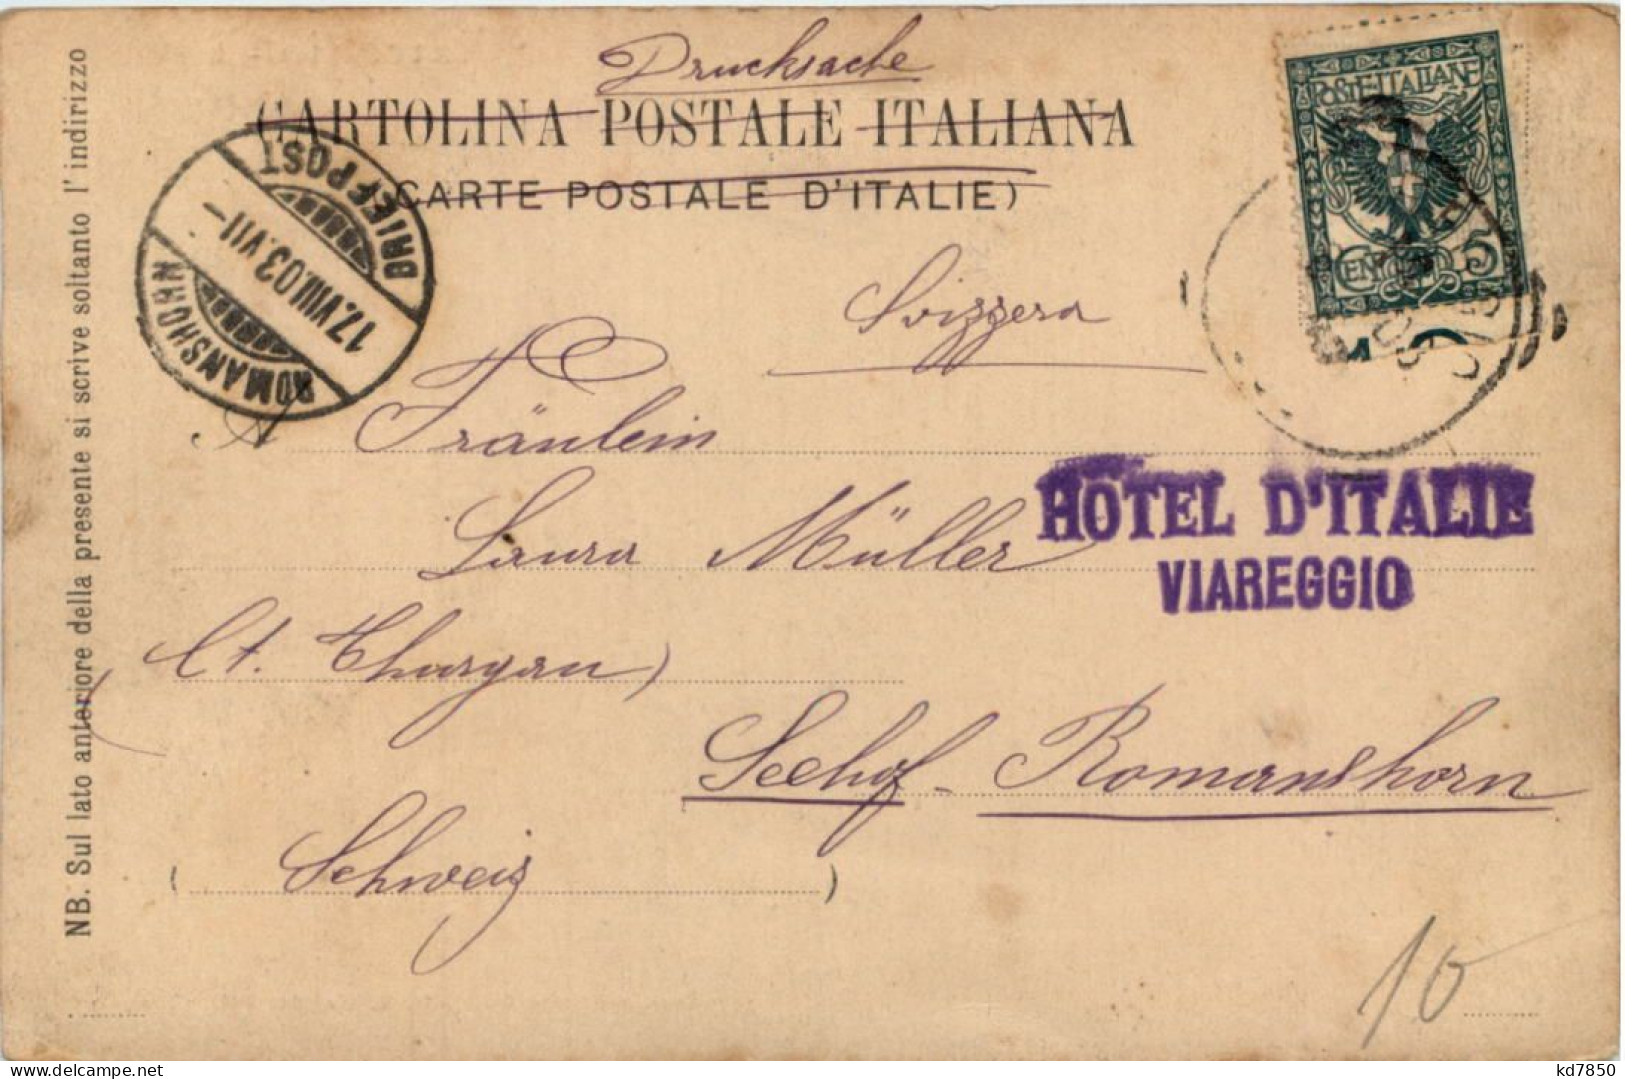 Drucksache
CARTOLINA POSTALE ITALIANA
(CARTE POSTALE D'ITALIE)
POSTE ITALIANE
CENT 5
ROMANSHORN
17.VIII.03.VII—
BRIEFPOST
Svizzera
A Fräulein
Laura Müller
HOTEL D'ITALIE
VIAREGGIO
(Ct. Thurgau)
Seehof - Romanshorn
(Schweiz)
10
NB. Sul lato anteriore della presente si scrive soltanto l'indirizzo
kd7850